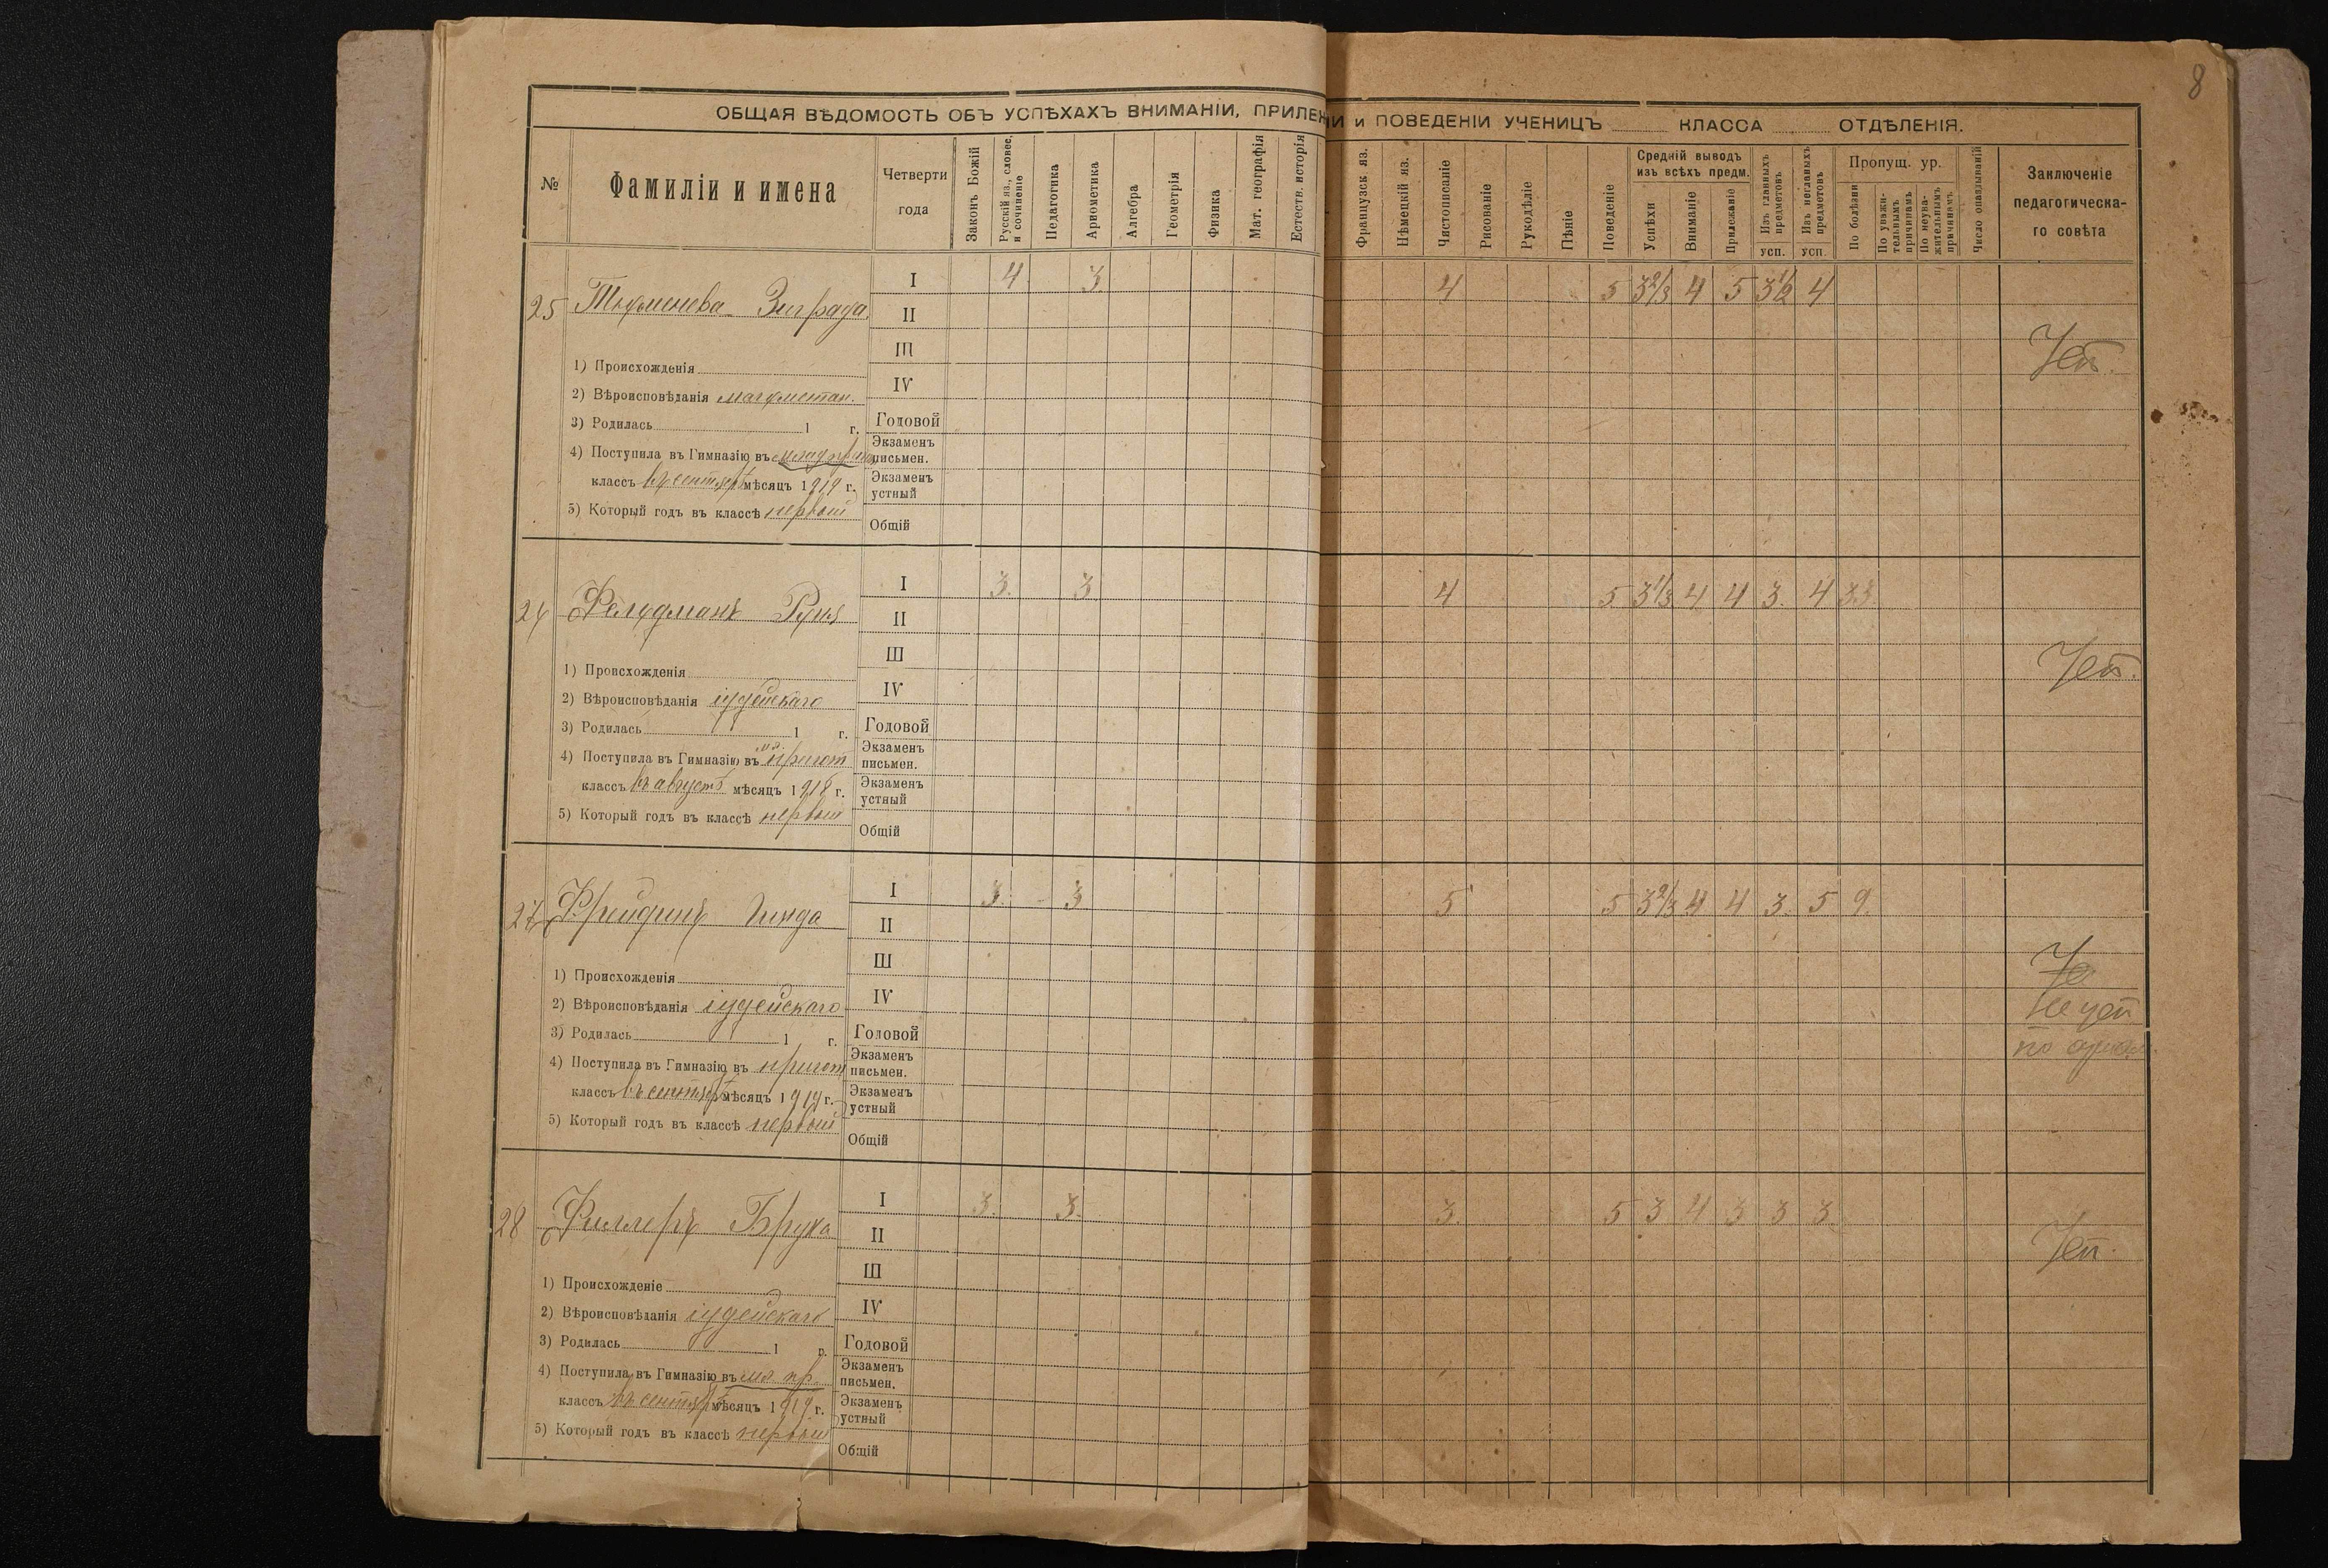 8
ОБЩАЯ ВѢДОМОСТЬ ОБЪ УСПѢХАХЪ ВНИМАНІИ, ПРИЛЕЖ НІИ и ПОВЕДЕНІИ УЧЕНИЦЪ КЛАССА ОТДѢЛЕНІЯ.
№
Фамиліи и имена
Четверти года
Законъ Божій
Русскій яз., словес. и сочиненіе
Педагогика
Ариѳметика
Алгебра
Геометрія
Физика
Мат. географія
Естеств. исторія
Французск яз.
Нѣмецкій яз.
Чистописаніе
Рисованіе
Рукодѣліе
Пѣніе
Поведеніе
Средній выводъ изъ всѣхъ предм.
Успѣхи
Вниманіе
Прилежаніе
Изъ главныхъ предметовъ
усп.
Изъ неглавныхъ предметовъ
усп.
Пропущ. ур.
По болѣзни
По уважительнымъ причинамъ
По неуважительнымъ причинамъ
Число опаздываній
Заключеніе педагогическаго совѣта
25
I 4 3 4 5 3 2/3 4 5 3 1/2 4
II
III
Усп.
1) Происхожденія
IV
2) Вѣроисповѣданія магометан.
3) Родилась 1 г.
Годовой
4) Поступила въ Гимназію въ
Экзаменъ письмен.
классъ въ сентябрѣ мѣсяцъ 1919 г.
Экзаменъ устный
5) Который годъ въ классѣ первый
Общій
Фельдманъ
I 3. 3. 4 5 3 1/3 4 4 3. 4 33.
II
III
Усп.
1) Происхожденія
IV
2) Вѣроисповѣданія іудейскаго
3) Родилась 1 г.
Годовой
4) Поступила въ Гимназію въ мл. пригот
Экзаменъ письмен.
классъ въ августѣ мѣсяцъ 1918 г.
Экзаменъ устный
5) Который годъ въ классѣ первый
Общій
27 Фрейдинъ
I 3. 3 5 5 3 2/3 4 4 3. 5 9.
II
III
1) Происхожденія
IV
2) Вѣроисповѣданія іудейскаго
Не усп
3) Родилась 1 г.
Годовой
по
4) Поступила въ Гимназію въ пригот
Экзаменъ письмен.
классъ въ сентябрѣ мѣсяцъ 1919 г.
Экзаменъ устный
5) Который годъ въ классѣ первый
Общій
28 Филлеръ
I 3. 3. 3. 5 3 4 3 3 3.
II
Усп.
III
1) Происхожденіе
IV
2) Вѣроисповѣданія іудейскаго
3) Родилась 1 р.
Годовой
4) Поступила въ Гимназію въ мл. пр.
Экзаменъ письмен.
классъ въ сентябрѣ мѣсяцъ 1919 г.
Экзаменъ устный
5) Который годъ въ классѣ первый
Общій